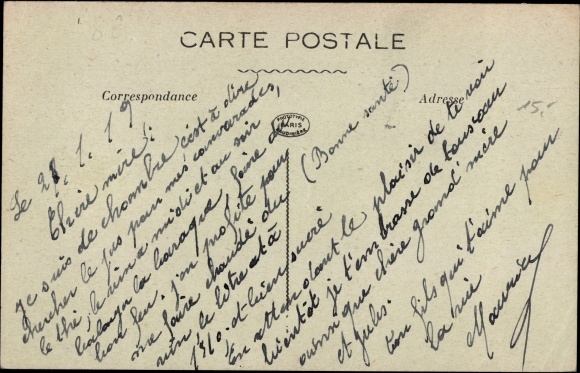 CARTE POSTALE
Correspondance
Adresse
15,-
PHOTOTYPIE
PARIS
Le 28.1.19
Chère mère!
Je suis de chambre c'est à dire
chercher le jus pour mes camarades,
le thé, le vin a midi et au soir
balayer la baraque, faire du
bon feu. j'en profite pour
me faire chaudé du
vin le litre et à
1f40. et bien sucré
(Bonne santé)
En attendant le plaisir de te voir
bientôt je t'embrasse de tous cœur
ainsi que chère grand'mère
et Jules.
ton fils qui t'aime pour
la vie
Maurice